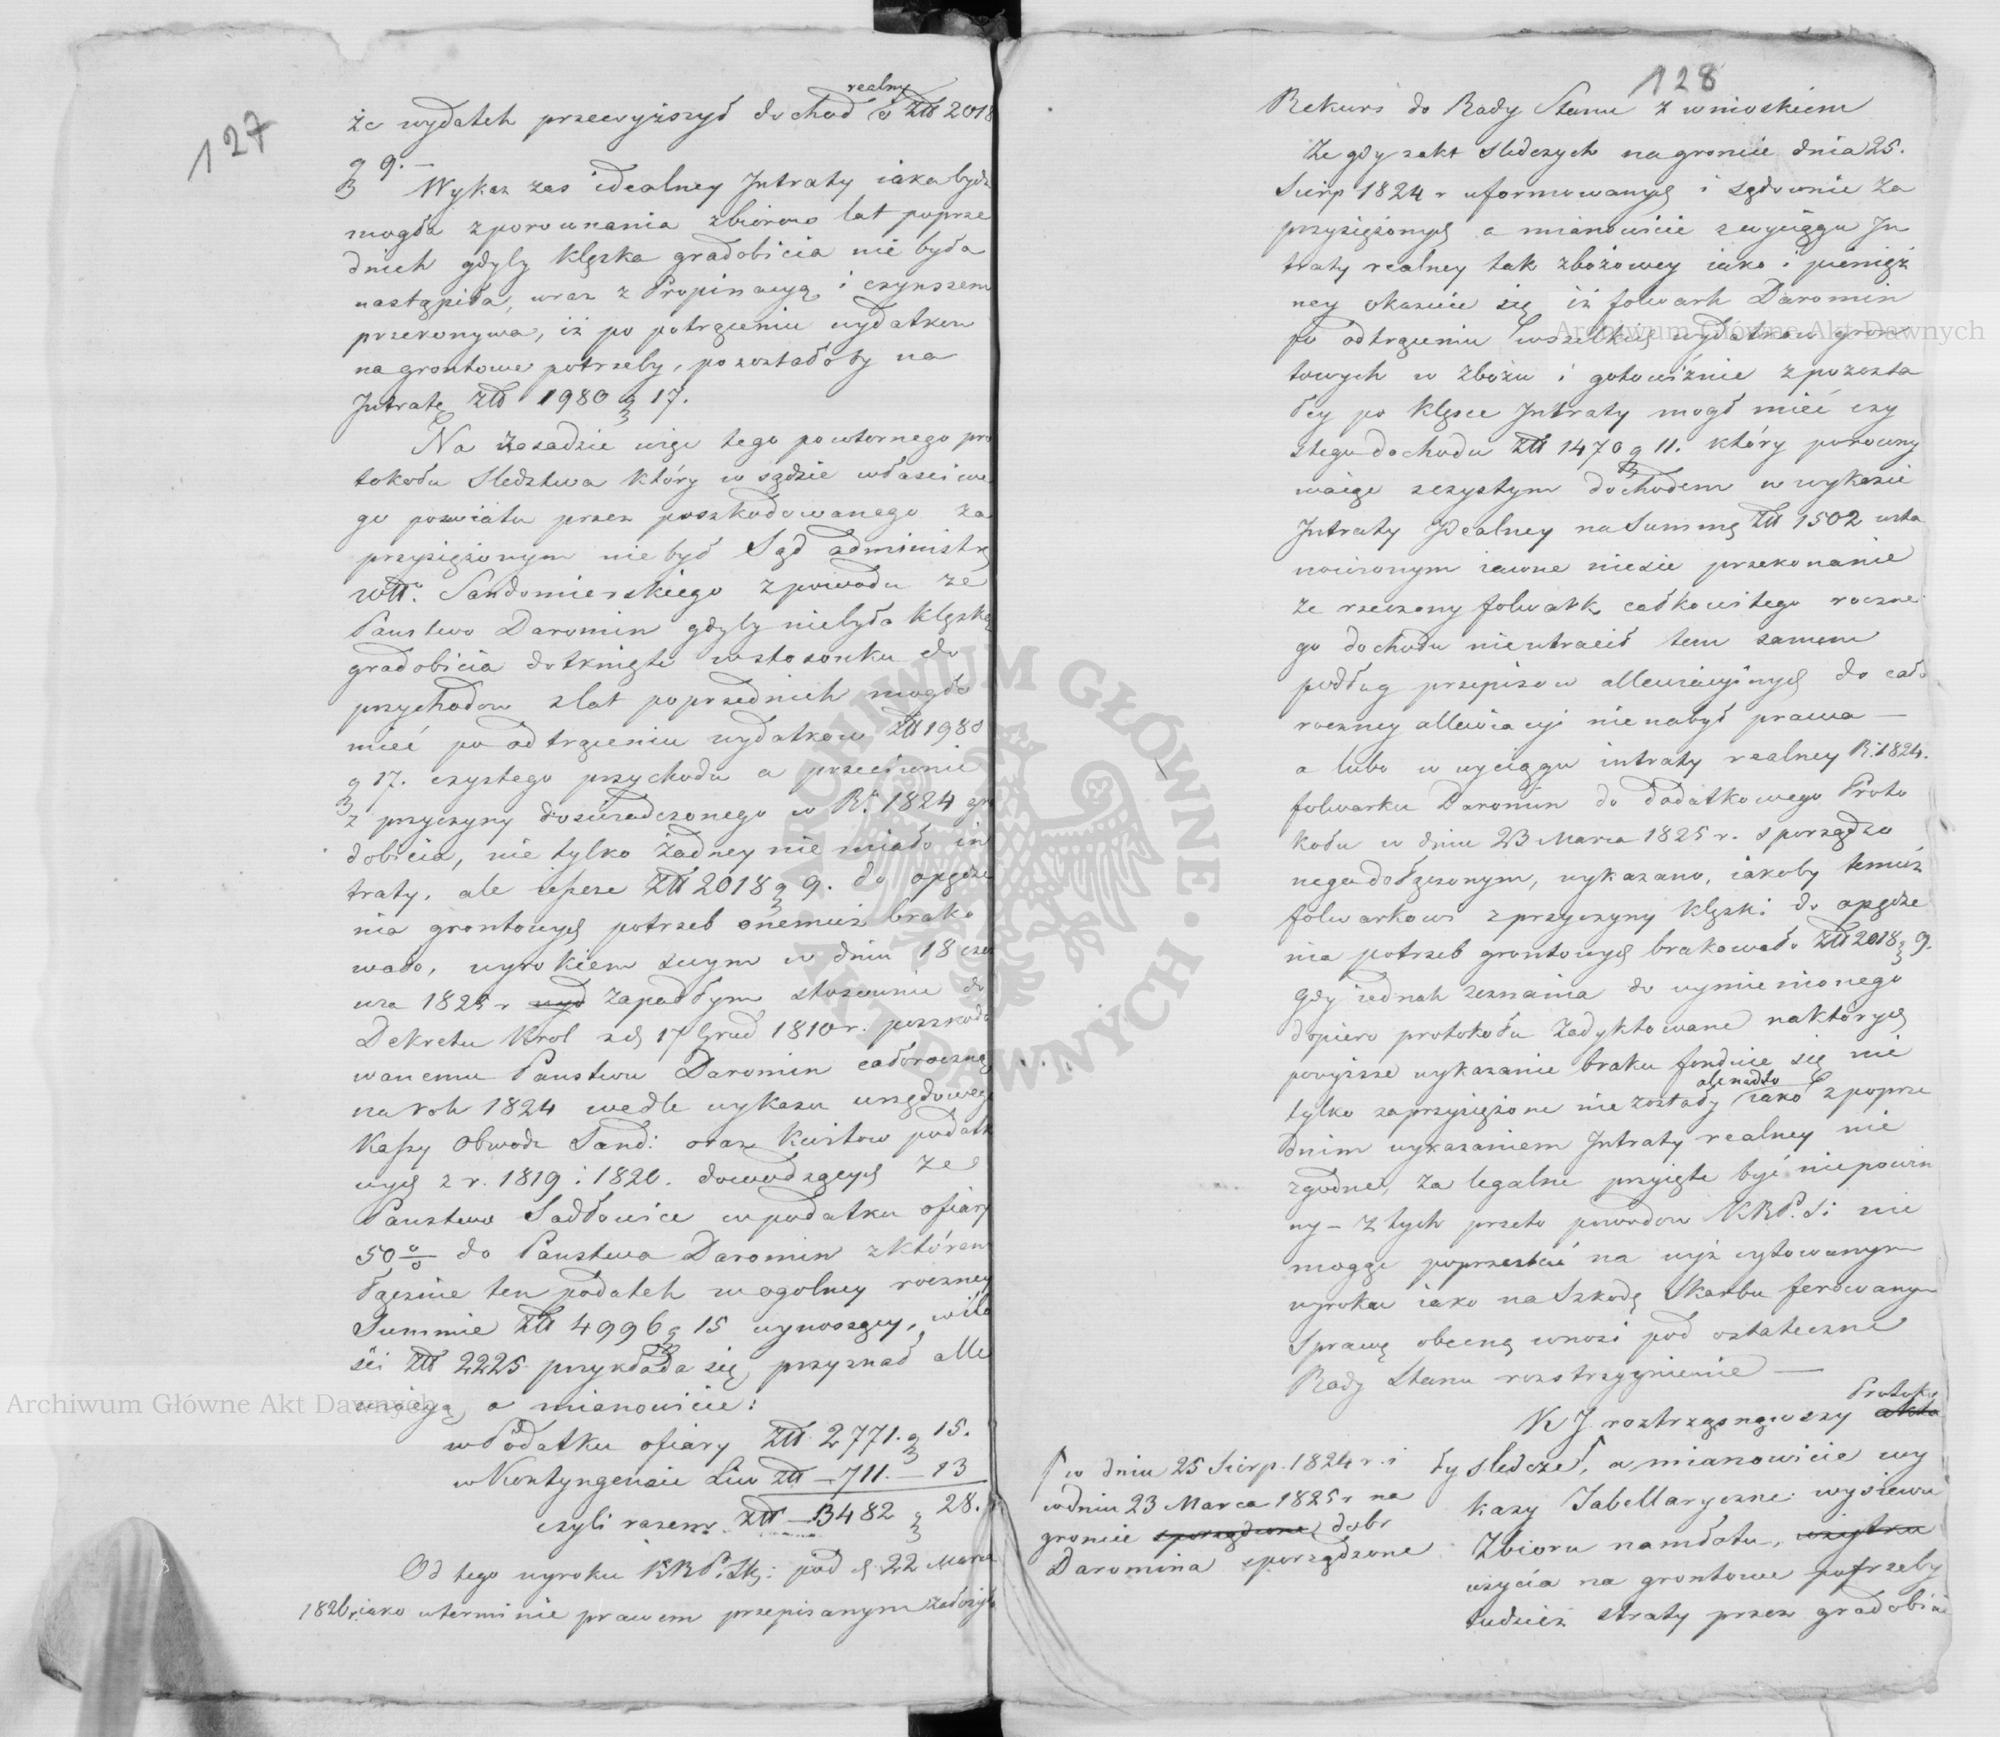 127
realny
że wydatek przewyższył dochod o Złł 2018
g 9. —
Wykaz zas idealney Intraty iaka bydz
mogła zporownania zbiorow lat poprze
dnich gdyby klęska gradobicia nie była
nastąpiła, wraz z Propinacyą i czynszem
przekonywa, iż po potrąceniu wydatkow
na grontowe potrzeby, pozostałoby na
Intratę Złł 1980 g 17.
Na zasadzie więc tego powtornego pro
tokołu Sledztwa który w sądzie właściwe
go powiatu przez poszkodowanego za
przysiężonym nie był Sąd administra
Wtt. Sandomierskiego zpowodu że
Panstwo Daromin gdyby niebyło klęską
gradobicia dotknięte wstosonku do
przychodow zlat poprzednich mogło
mieć po odtrąceniu wydatkow Złł 1980
g 17. czystego przychodu a przeciwnie
z przyczyny doświadczonego w R. 1824 gra
dobicia, nie tylko żadney nie miało in
traty, ale ieszcze Złł 2018 g 9. do opędze
nia grontowych potrzeb onemuż brako
wało, wyrokiem swym w dniu 18 czer
wca 1825 r wyd zapadłym stosownie do
Dekretu Krol z d. 17 Grud 1810 r. poszkodo
wanemu Panstwu Daromin całoroczną
na rok 1824 wedle wykazu urzędowego
Kassy Obwodu Sand: oraz kwitow podatk
wych z r. 1819 i 1820. dowodzących że
Panstwo Sadłowice w podatku ofiary
50 % do Panstwa Daromin zktórem
łącznie ten podatek w ogolney roczney
Summie Złł 4996 g 15 wynoszący, w ilo
ści Złł 2225 przykłada się, przyznał alle
wiacyą, a mianowicie:
w Podatku ofiary Złł 2771. g 15.
w Kontyngensie Liw Złł — 711. — 13
czyli razem Złł — 3482 g 28.
Od tego wyroku KRP. i Sk: pod d. 22 Marca
1826, iako w terminie prawem przepisanym założyła
128
Rekurs do Rady Stanu z wnioskiem
Ze gdy z akt sledczych na groncie dnia 25.
Sierp 1824 r uformowanych i sądownie za
przysiężonych a mianowicie z wyciągu In
traty realney tak zbożowey iako i pienięż
ney okazuie się iż folwark Daromin
po odtrąceniu wszelkich wydatkow gron
towych w zbożu i gotowiźnie z pozosta
łey po klęsce Intraty mogł mieć czy
stego dochodu Złł 1470 g 11. który porowny
waiąc z czystym dochodem w wykazie
Intraty Idealney na Summę Złł 1502 usta
nowionym iawne niesie przekonanie
że rzeczony folwark całkowitego roczne
go dochodu nieutracił tem samem
podług przepisow allewiacyinych do cało
roczney allewiacyi nie nabył prawa —
a lubo w wyciągu intraty realney R. 1824.
folwarku Daromin do dodatkowego Proto
kołu w dniu 23 Marca 1825 r. sporządzo
nego dołączonym, wykazano, iakoby temuż
folwarkowi z przyczyny klęski do opędze
nia potrzeb grontowych brakowało Złł 2018 g 9.
gdy iednak zeznania do wymienionego
dopiero protokołu zadyktowane na których
powyższe wykazanie braku fonduie się nie
ale nadto
tylko zaprzysiężone nie zostały iako z poprze
dnim wykazaniem Intraty realney nie
zgodne, za legalne przyięte być niepowin
ny — Z tych przeto powodow KRP. i S: nie
mogąc poprzestać na wyż cytowanym
wyroku iako na Szkodę Skarbu ferowanym
Sprawę obecną wnosi pod ostateczne
Rady Stanu rozstrzygnienie —
Protoko
K I roztrząsnąwszy akta
ły sledcze, a mianowicie wy
kazy Tabellaryczne wysiewu
Zbioru namłotu, użytku
użycia na grontowe potrzeby
tudzież straty przez gradobicie
w dniu 25 Sierp. 1824 r. i
w dniu 23 Marca 1825 r na
groncie sporządzone dobr
Daromina sporządzone
Archiwum Główne Akt Dawnych
Archiwum Główne Akt Dawnych
ARCHIWUM GŁÓWNE AKT DAWNYCH